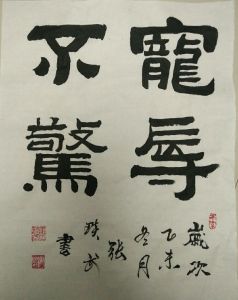 寵辱
不驚
歲次
乙未
冬月
張
書